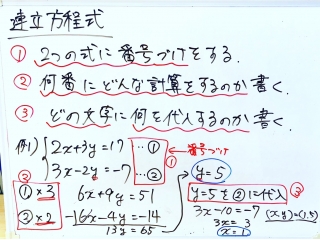 連立方程式
① 2つの式に番号づけをする.
② 何番にどんな計算をするのか書く.
③ どの文字に何を代入するのか書く.
例1) 2x+3y=17 … ①
3x-2y=-7 … ②
① 番号づけ
②
①×3
②×2
6x+9y=51
-)6x-4y=-14
13y=65
y=5
y=5を②に代入 ③
3x-10=-7
3x=3
x=1
(x,y)=(1,5)